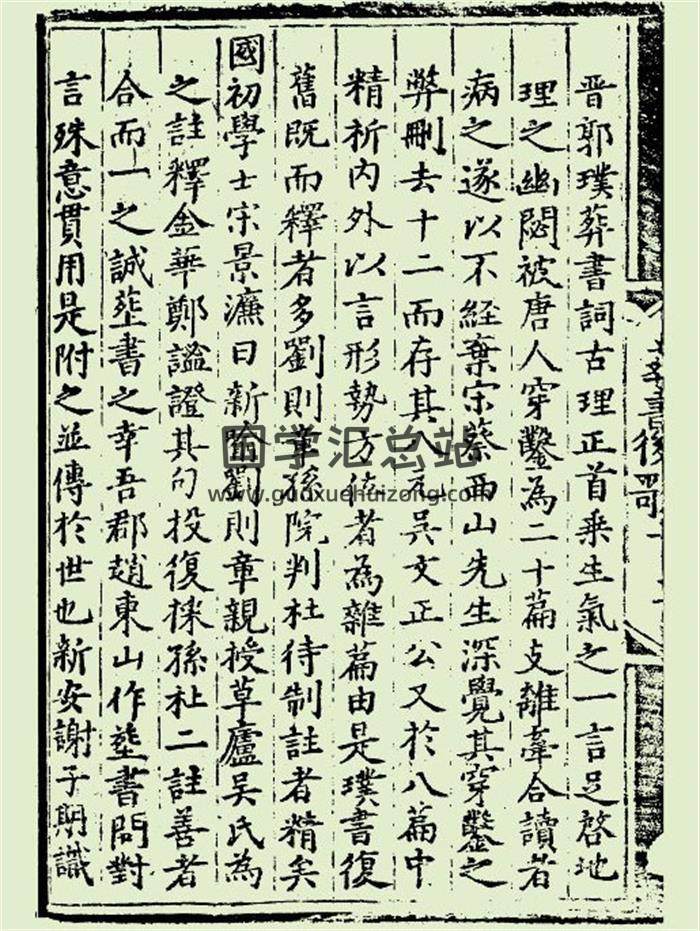 晋郭璞葬書詞古理正首乗生氣之一言足啓地
理之幽閟被唐人穿鑿為二十篇支離牽合讀者
病之遂以不経棄宋蔡西山先生深覺其穿鑿之
弊刪去十二而存其八元吳文正公又於八篇中
精析内外以言形勢方位者為雜篇由是璞書復
舊既而釋者多劉則章孫院判杜待制註者精矣
國初學士宋景濂曰新喻劉則章親授草廬吳氏為
之註釋金華鄭謐證其句投復採孫杜二註善者
合而一之誠塟書之幸吾郡趙東山作塟書問對
言殊意貫用是附之並傳於世也新安謝子期識
書後
国学汇总站
www.guoxuehuizong.com